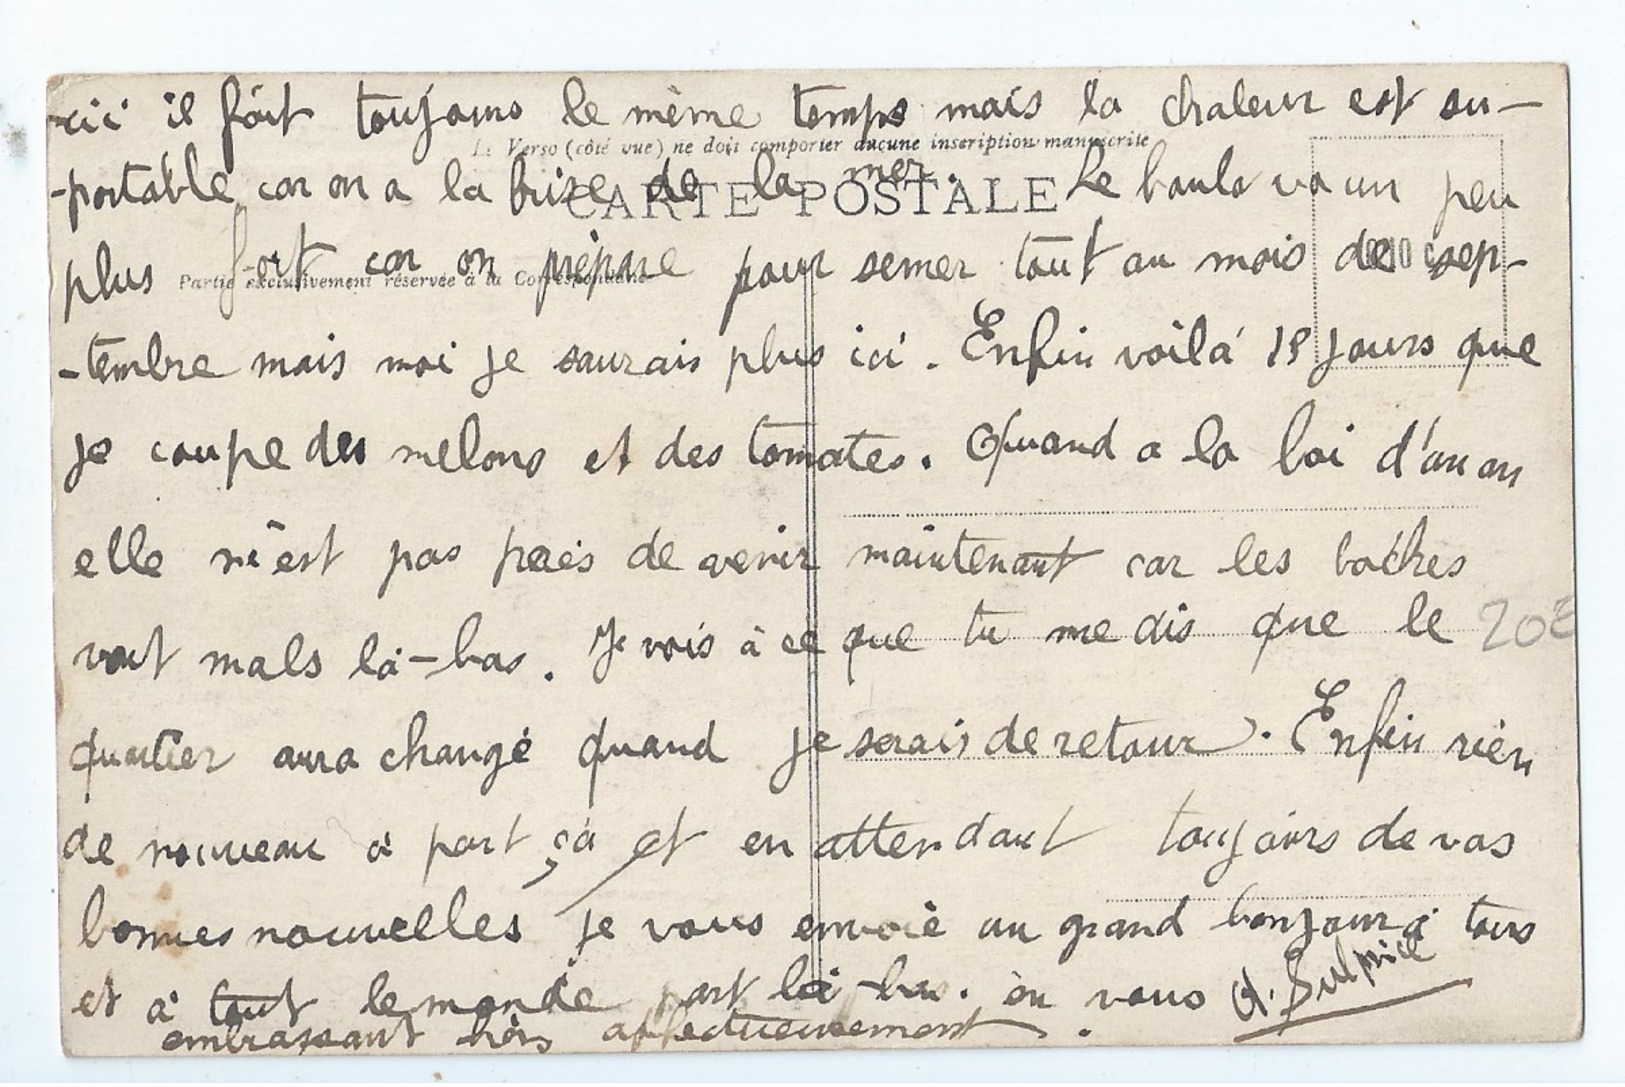 ici il fait toujours le même temps mais la chaleur est su-
Le Verso (côté vue) ne doit comporter aucune inscription manuscrite
-portable car on a la brise de la mer. Le boulo va un peu
CARTE POSTALE
plus fort car on prépare pour semer tout au mois de sep-
Partie exclusivement réservée à la Correspondance
-tembre mais moi je saurais plus ici. Enfin voilà 15 jours que
je coupe des melons et des tomates. Quand a la loi d'un an
elle n'est pas près de venir maintenant car les boches
vont mals là-bas. Je vois à ce que tu me dis que le
20E
quartier aura changé quand je serais de retour. Enfin rien
de nouveau à part ça et en attendant toujours de vos
bonnes nouvelles je vous envoie un grand bonjour à tous
et à tout le monde part là-bas. en vous
embrassant très affectueusement.
A. Sulpice